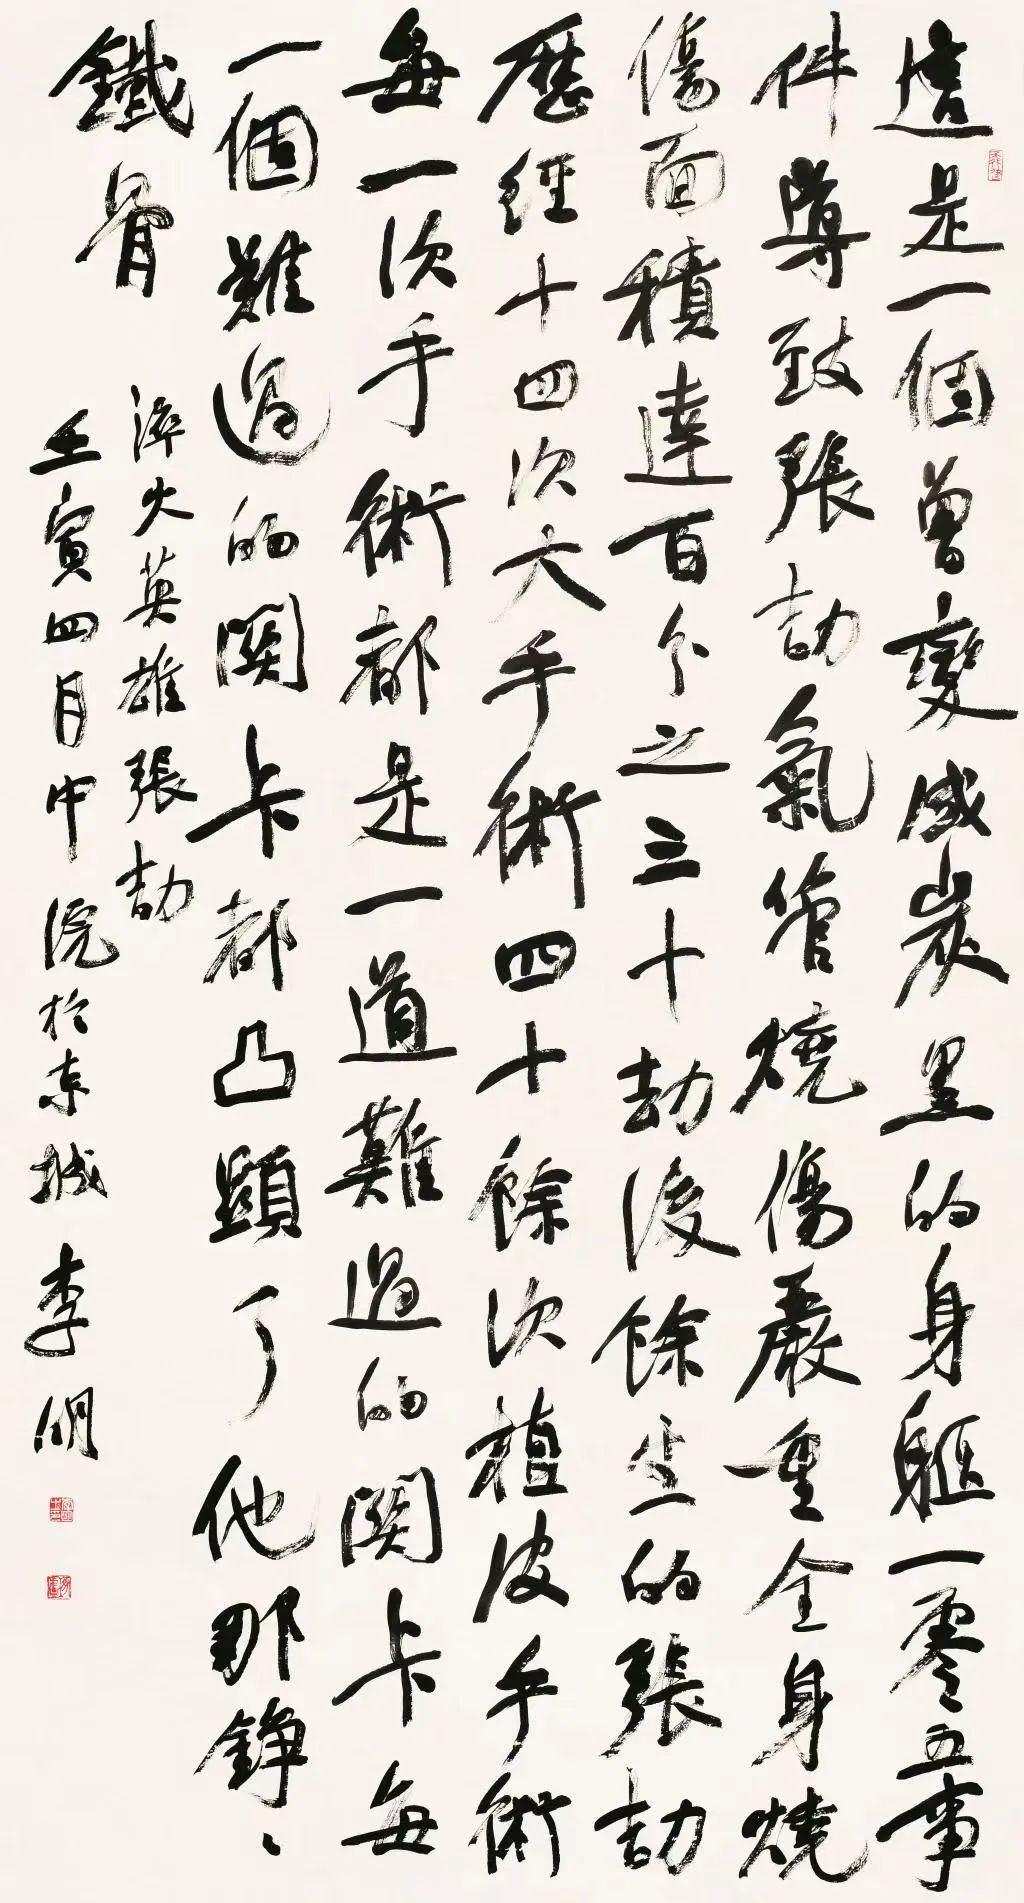 這是一個曾變成炭黑的身軀一零五事
件導致張劼氣管燒傷嚴重全身燒
傷面積達百分之三十劫後餘生的張劼
歷經十四次大手術四十餘次植皮手術
每一次手術都是一道難過的關卡每
一個難過的關卡都凸顯了他那錚〻
鐵骨
淬火英雄張劼
壬寅四月中浣於京城 李明